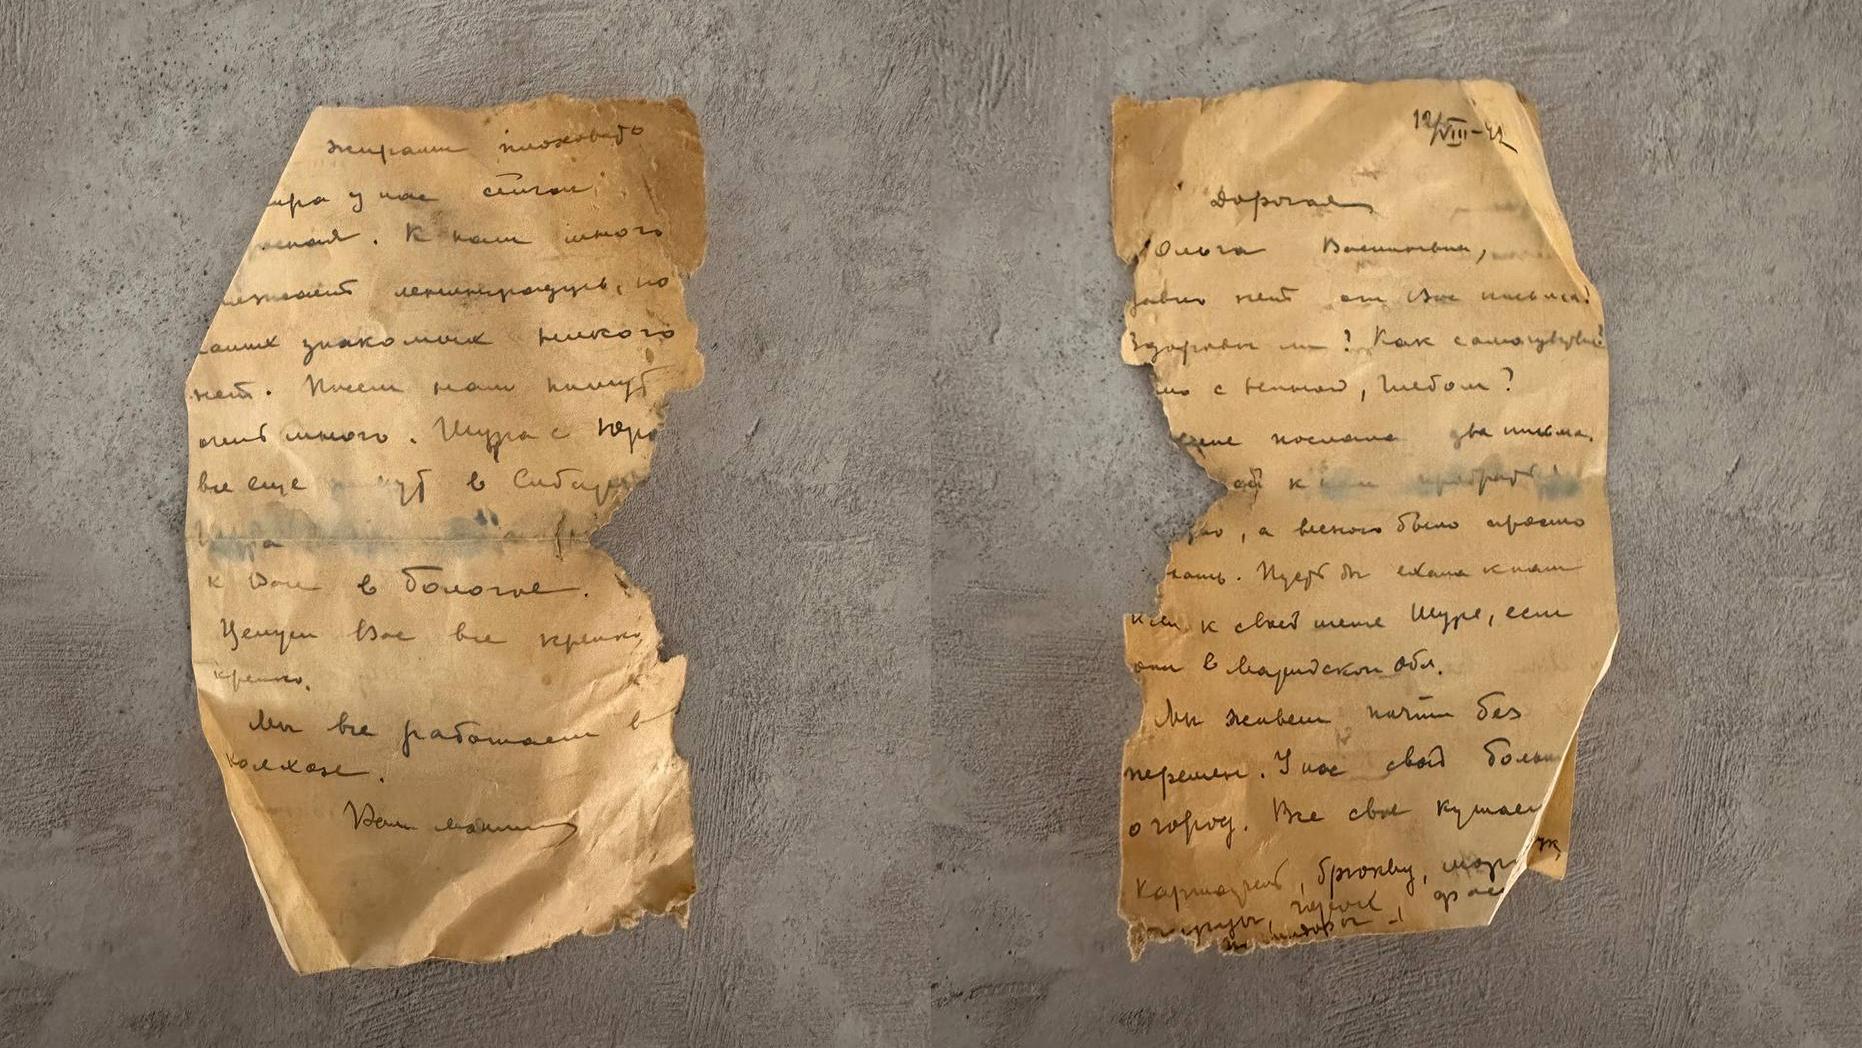 жирами плоховато
у нас стал
. К нам много
ленинградцев, но
наших знакомых никого
нет. Писем нам пишут
очень много. Шура с Юро
все еще в Сибири
Шура
к Вам в Бологое.
Целуем Вас все крепко
крепко.
Мы все работаем в
колхозе.
Ваш
12/VIII-42
Дорогая
Ольга Васильевна,
давно нет от Вас письма!
Здоровы ли? Как самочувствие
что с Ниной, Глебом?
послала два письма.
ей к
, а весною было просто
. Пусть бы ехала к нам
или к своей тете Шуре, если
они в Марийской обл.
Мы живем почти без
перемен. У нас свой больш
огород. Все свое кушаем
картофель, брюкву, мор
огурцы, горох, фас
помидоры